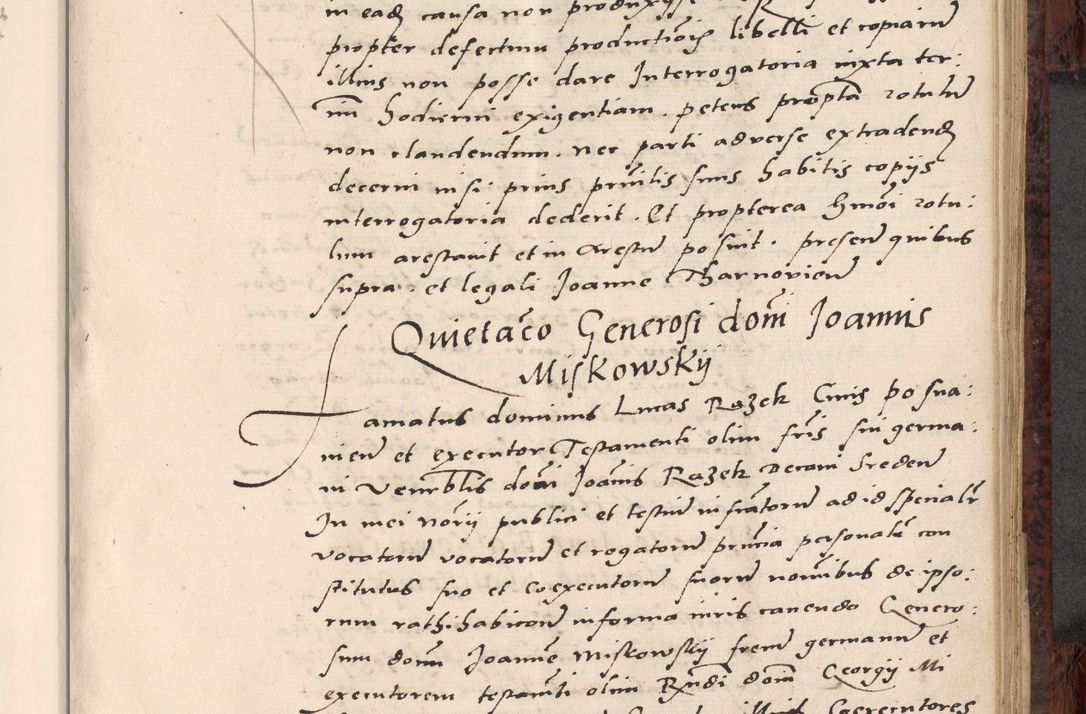 in eadẽ causa non produxisse
propter defectum productiõis libelli et copiarũ
illius non posse dare Interrogatoria iuxta ter:
mĩ hodierni exigentiam. petens propta rotulũ
non claudendum. nec parti adverse extradendũ
decerni nisi prius prmĩtis suis habitis copijs
interrogatoria dederit. Et propterea hmõi rotu:
lum arestavit et in arestũ posuit. presen quibus
supra. et legali Joanne Tharnovien
Quietaĉo Generosi domĩ Joannis
Miskowskij
Famatus dominus Lucas Razek Civis posna:
nien et executor Testamenti olim fris sui germa:
ni Venerblis domĩ Joannis Razek Decani Sreden
In mei norij publici et testiũ infratorũ ad id specialr
vocatorũ vocatorũ et rogatorũ prncia personalr con
stitutus suo et coexecutorũ suorũ nomĩbus de ipso:
rum rathihabicone in forma iuris canendo Genero:
sum domĩ Joannẽ Miskowskij frem germanũ et
executorem testamẽti olim Rñdi domĩ Georgij Mi
Coexecutores